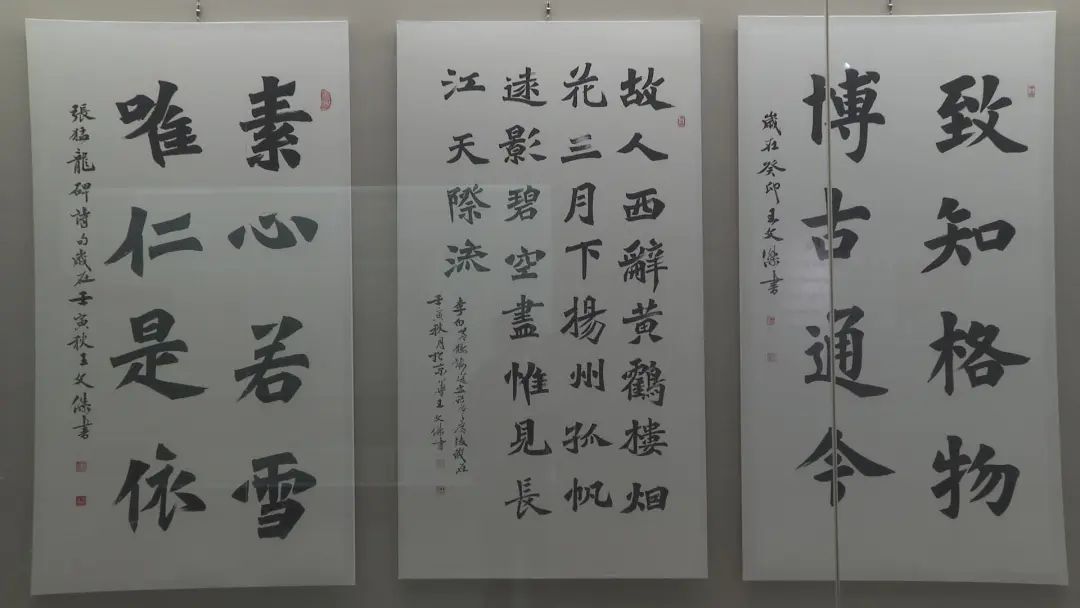 致知格物
博古通今
歲在癸卯王文傑書
故人西辭黄鶴樓烟
花三月下揚州孤帆
遠影碧空盡惟見長
江天際流
李白黄鶴樓送孟浩然之廣陵歲在
壬寅秋月於京華王文傑書
素心若雪
唯仁是依
張猛龍碑詩句歲在壬寅秋王文傑書